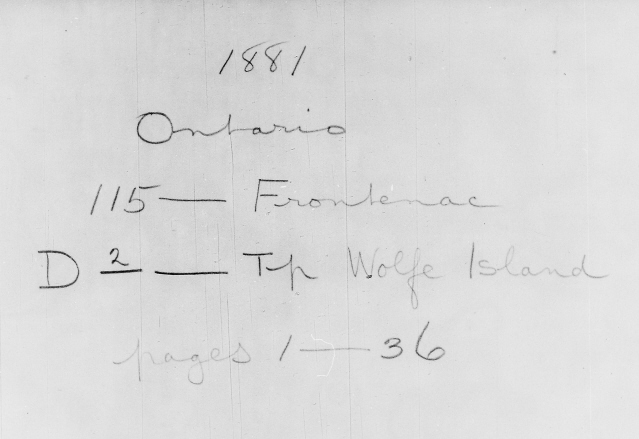 1881
Ontario
115 — Frontenac
D 2 — Tp Wolfe Island
pages 1 — 36